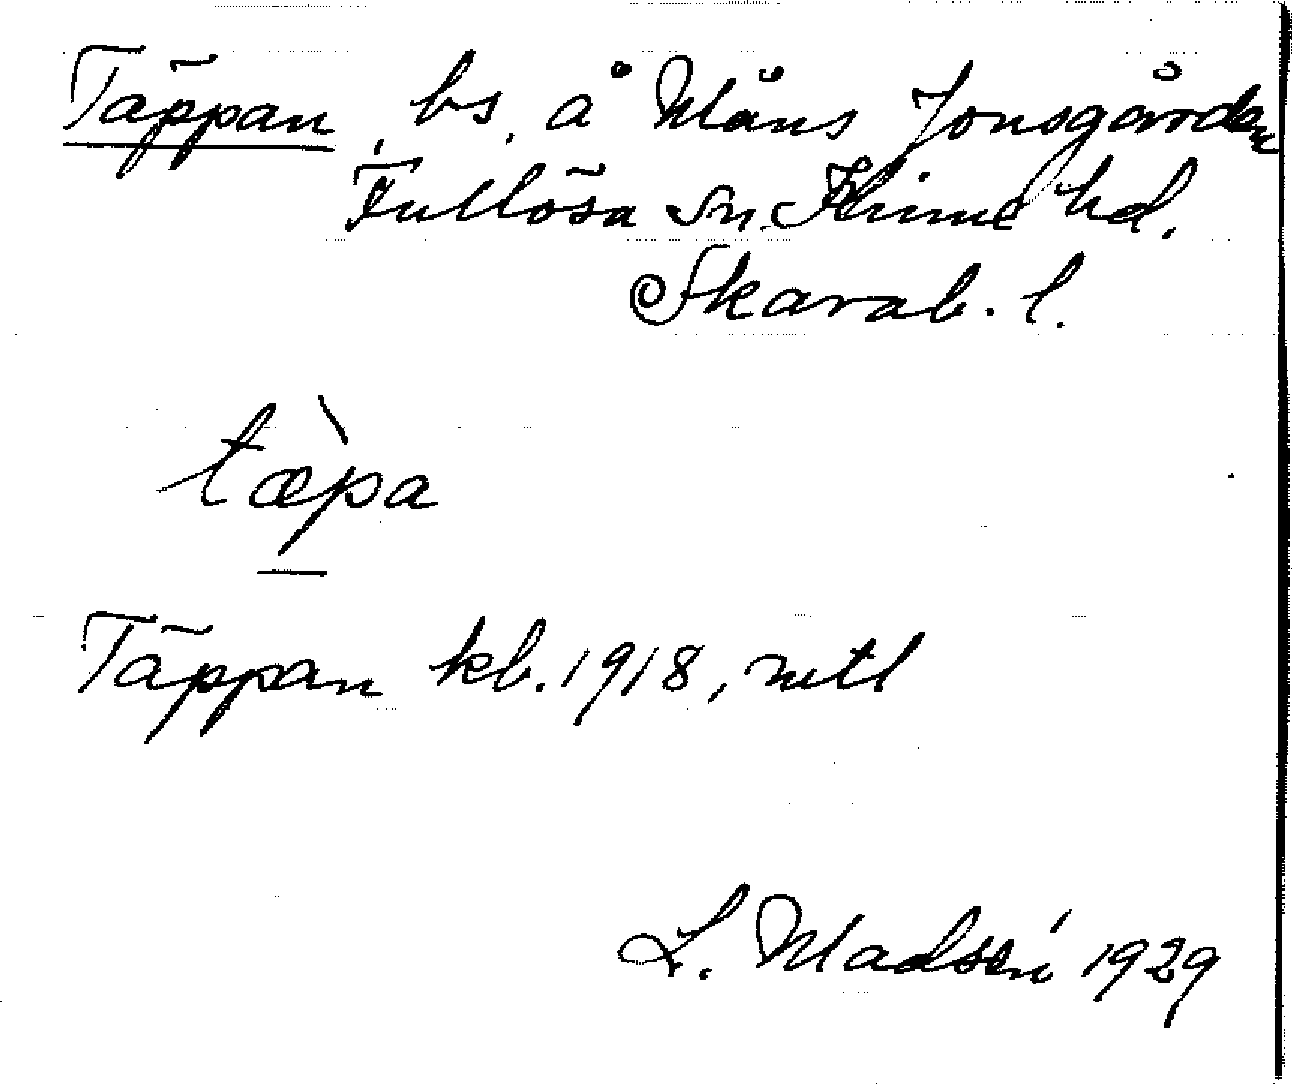 Täppan, bs. å Måns Jonsgården
Fullösa sn. Kinne hd.
Skarab. l.
tæ̀pa
Täppan kb. 1918, mtl
L. Madsén 1929